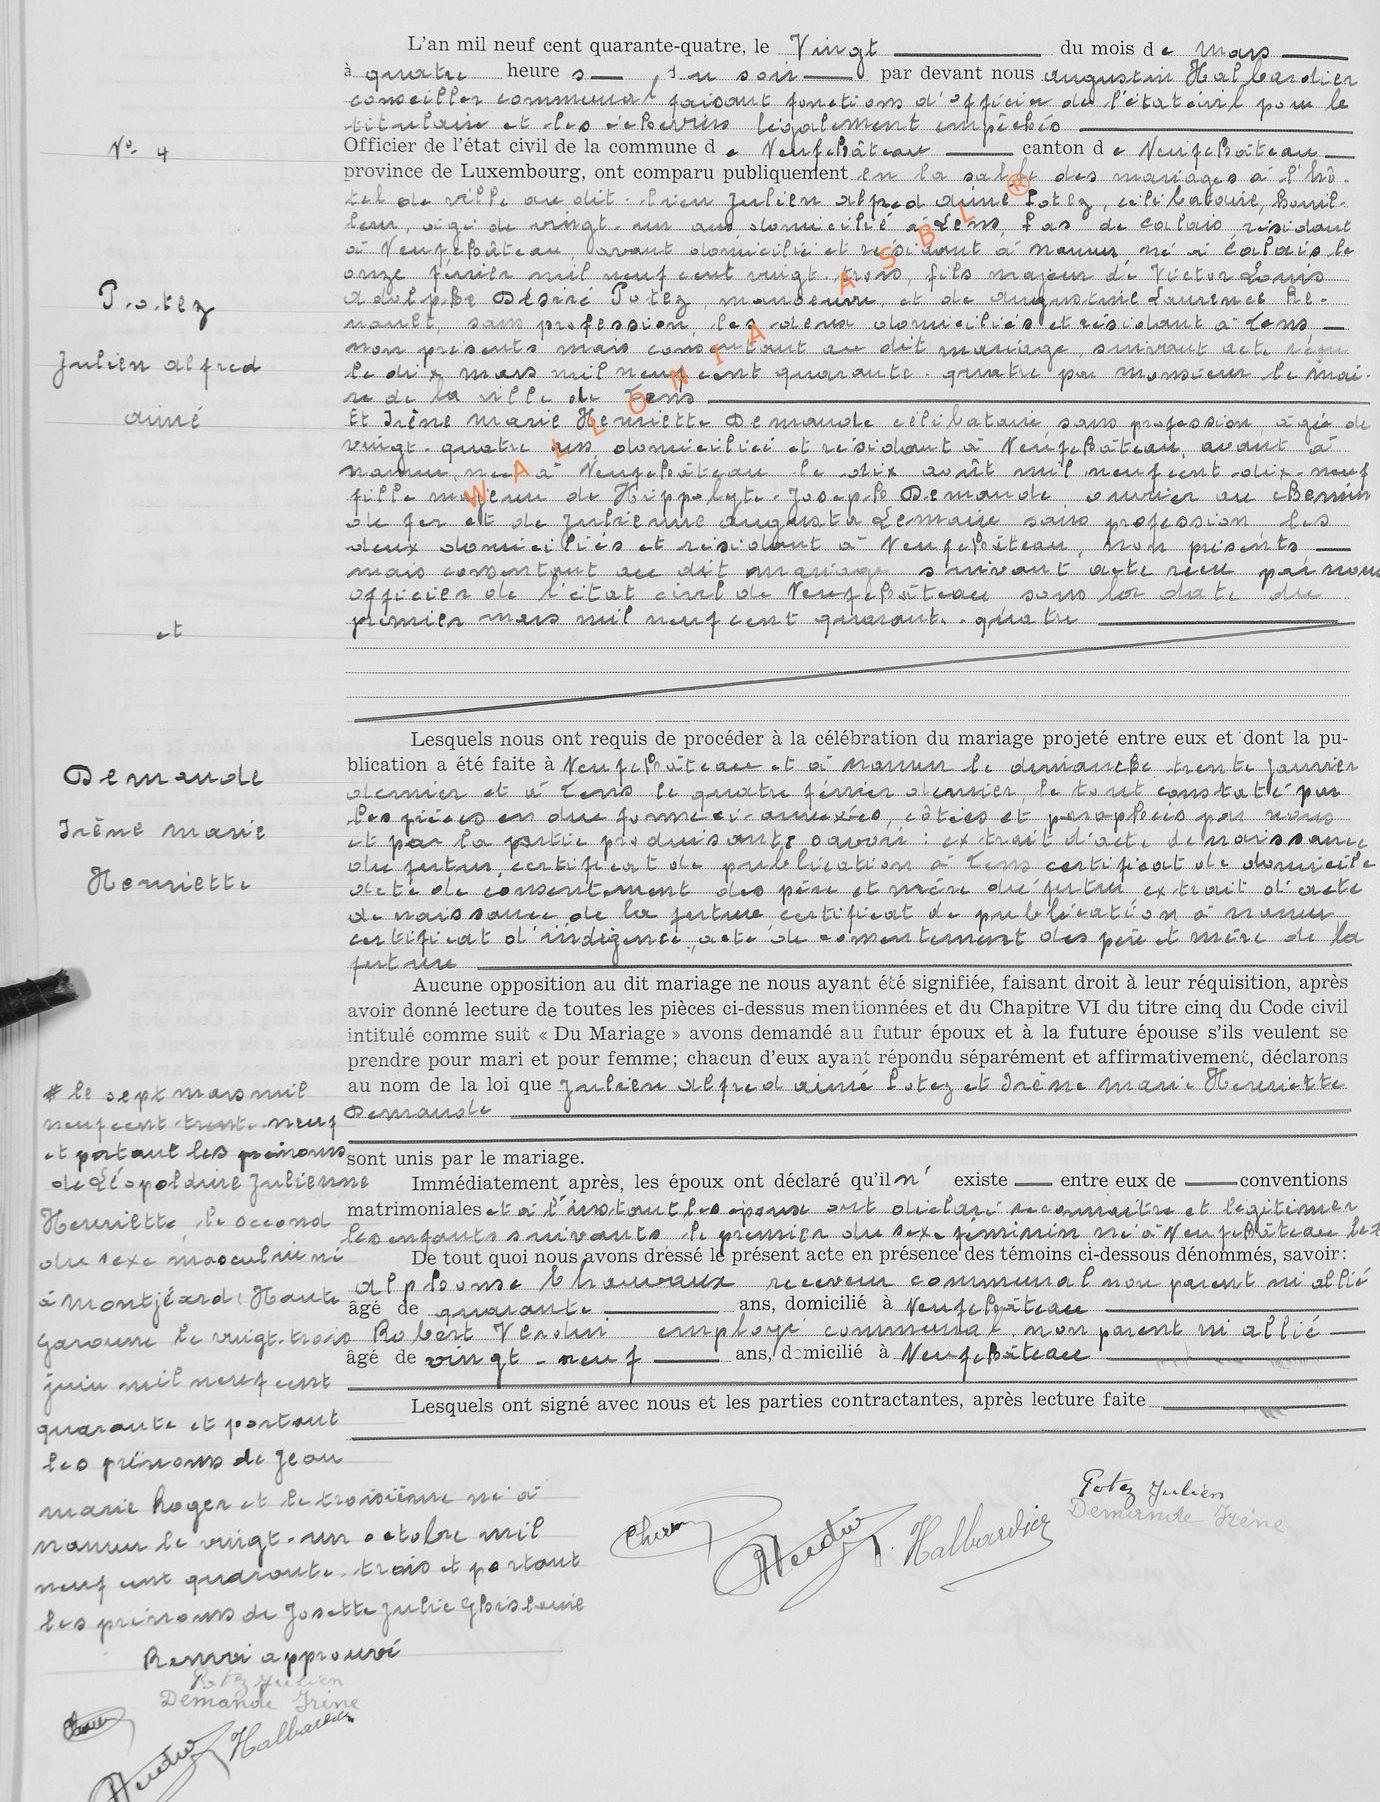 L'an mil neuf cent quarante-quatre, le Vingt du mois de Mars
à quatre heures du soir par devant nous Augustin Halbardier
conseiller communal faisant fonctions d'officier de l'état civil pour le
titulaire et les échevins légalement empêchés
N° 4
Officier de l'état civil de la commune de Neufchâteau canton de Neufchâteau
province de Luxembourg, ont comparu publiquement en la salle des mariages à l'hô-
tel de ville au dit lieu Julien Alfred Aimé Potez, célibataire, houil-
leur, âgé de vingt-un ans, domicilié à Lens, Pas de Calais résidant
à Neufchâteau, avant domicilié et résidant à Namur, né à Calais le
onze février mil neuf cent vingt-trois, fils majeur de Victor Louis
Adolphe Désiré Potez, manoeuvre, et de Augustine Laurence Re-
nault, sans profession, les deux domiciliés et résidant à Lens
non présents mais consentant au dit mariage, suivant acte réçu
le dix mars mil neuf cent quarante-quatre par Monsieur le Mai-
re de la ville de Lens
Potez
Julien Alfred
Aimé
Et Irène Marie Henriette Demande célibataire sans profession, âgée de
vingt-quatre ans, domiciliée et résidant à Neufchâteau, avant à
Namur, née à Neufchâteau le dix août mil neuf cent dix-neuf
fille majeure de Hippolyte Joseph Demande ouvrier au chemin
de fer et de Julienne Augusta Lemaire sans profession les
deux domiciliés et résidant à Neufchâteau, non présents
mais consentant au dit mariage suivant acte réçu par nous
officier de l'état civil de Neufchâteau sous la date du
premier mars mil neuf cent quarante-quatre
et
WALLONIA ASBL ®
Lesquels nous ont requis de procéder à la célébration du mariage projeté entre eux et dont la pu-
blication a été faite à Neufchâteau et à Namur le dimanche trente janvier
dernier et à Lens le quatre février dernier, le tout constaté par
les pièces en due forme ci-annexées, côtées et paraphées par nous
et par la partie produisante savoir: extrait d'acte de naissance
du futur, certificat de publication à Lens certificat de domicile
acte de consentement des père et mère du futur extrait d'acte
de naissance de la future certificat de publication à Namur
certificat d'indigence, acte de consentement des père et mère de la
future
Demande
Irène Marie
Henriette
Aucune opposition au dit mariage ne nous ayant été signifiée, faisant droit à leur réquisition, après
avoir donné lecture de toutes les pièces ci-dessus mentionnées et du Chapitre VI du titre cinq du Code civil
intitulé comme suit « Du Mariage » avons demandé au futur époux et à la future épouse s'ils veulent se
prendre pour mari et pour femme; chacun d'eux ayant répondu séparément et affirmativement, déclarons
au nom de la loi que Julien Alfred Aimé Potez et Irène Marie Henriette
Demande
sont unis par le mariage.
Immédiatement après, les époux ont déclaré qu'il n' existe entre eux de conventions
matrimoniales et à l'instant les époux ont déclaré reconnaître et légitimer
les enfants suivants le premier du sexe féminin né à Neufchâteau le #
De tout quoi nous avons dressé le présent acte en présence des témoins ci-dessous dénommés, savoir:
Alphonse receveur communal non parent ni allié
âgé de quarante ans, domicilié à Neufchâteau
Robert employé communal non parent ni allié
âgé de vingt-neuf ans, domicilié à Neufchâteau
Lesquels ont signé avec nous et les parties contractantes, après lecture faite
# le sept mars mil
neuf cent trente-neuf
et portant les prénoms
de Léopoldine Julienne
Henriette, le second
du sexe masculin né
à Montjéard, Haute
Garonne le vingt-trois
juin mil neuf cent
quarante et portant
les prénoms de Jean
Marie Roger et le troisième né à
Namur le vingt-un octobre mil
neuf cent quarante-trois et portant
les prénoms de Josette Julie Ghislaine
Renvoi approuvé
Potez Julien
Demande Irène
Halbardier
Potez Julien
Demande Irène
Halbardier